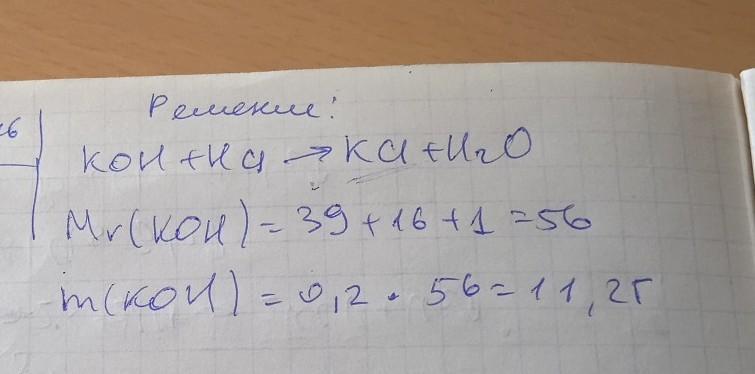 Решение:
KOH + HCl → KCl + H₂O
Mr(KOH) = 39 + 16 + 1 = 56
m(KOH) = 0,2 · 56 = 11,2г